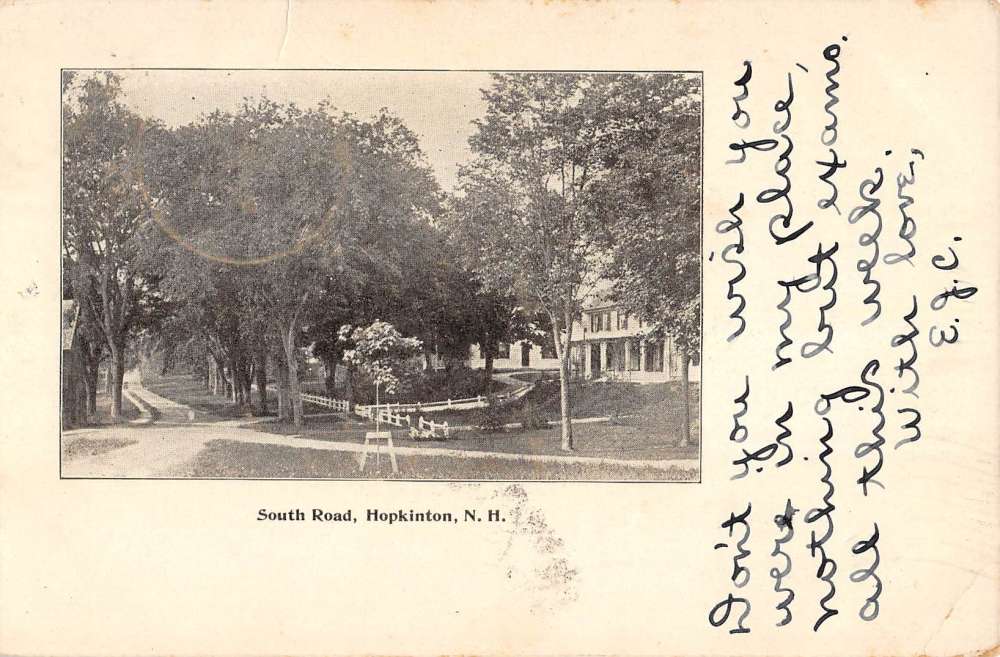 South Road, Hopkinton, N. H.
Don't you wish you
were in my place,
nothing but exams.
all this week.
With love,
E. J. C.